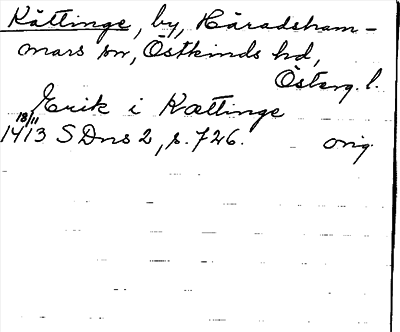 Kättinge, by, Häradsham-
mars sn, Östkinds hd,
Österg. l.
Erik i Kættinge
18/11
1413 SDns 2, s. 726. orig.